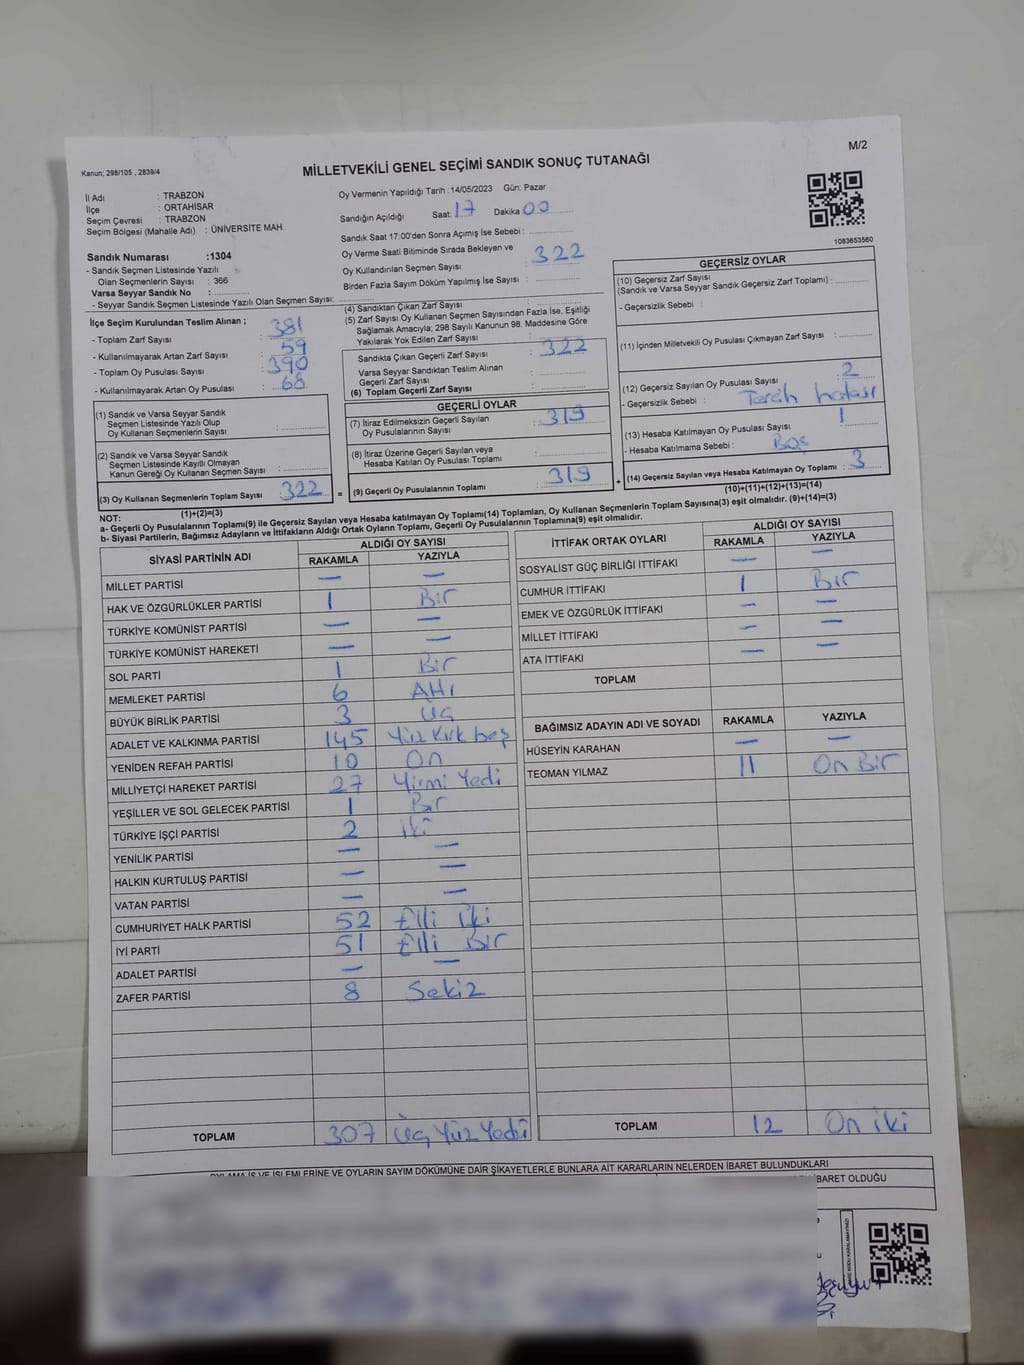 M/2
Kanun; 298/105 , 2839/4
MİLLETVEKİLİ GENEL SEÇİMİ SANDIK SONUÇ TUTANAĞI
İl Adı : TRABZON
İlçe : ORTAHİSAR
Seçim Çevresi : TRABZON
Seçim Bölgesi (Mahalle Adı) : ÜNİVERSİTE MAH.
Sandık Numarası :1304
- Sandık Seçmen Listesinde Yazılı
Olan Seçmenlerin Sayısı : 366
Varsa Seyyar Sandık No :
- Seyyar Sandık Seçmen Listesinde Yazılı Olan Seçmen Sayısı:
Oy Vermenin Yapıldığı Tarih :14/05/2023 Gün: Pazar
Sandığın Açıldığı Saat: 17 Dakika 00
Sandık Saat 17:00'den Sonra Açımış İse Sebebi :
Oy Verme Saati Bitiminde Sırada Bekleyen ve
Oy Kullandırılan Seçmen Sayısı : 322
Birden Fazla Sayım Döküm Yapılmış İse Sayısı :
1083653560
İlçe Seçim Kurulundan Teslim Alınan ;
- Toplam Zarf Sayısı : 381
- Kullanılmayarak Artan Zarf Sayısı : 59
- Toplam Oy Pusulası Sayısı : 390
- Kullanılmayarak Artan Oy Pusulası : 68
(1) Sandık ve Varsa Seyyar Sandık
Seçmen Listesinde Yazılı Olup
Oy Kullanan Seçmenlerin Sayısı :
(2) Sandık ve Varsa Seyyar Sandık
Seçmen Listesinde Kayıtlı Olmayan
Kanun Gereği Oy Kullanan Seçmen Sayısı :
(3) Oy Kullanan Seçmenlerin Toplam Sayısı : 322
(1)+(2)=(3)
(4) Sandıktan Çıkan Zarf Sayısı :
(5) Zarf Sayısı Oy Kullanan Seçmen Sayısından Fazla İse, Eşitliği
Sağlamak Amacıyla; 298 Sayılı Kanunun 98. Maddesine Göre
Yakılarak Yok Edilen Zarf Sayısı :
Sandıkta Çıkan Geçerli Zarf Sayısı : 322
Varsa Seyyar Sandıktan Teslim Alınan
Geçerli Zarf Sayısı :
(6) Toplam Geçerli Zarf Sayısı :
GEÇERLİ OYLAR
(7) İtiraz Edilmeksizin Geçerli Sayılan
Oy Pusulalarının Sayısı : 319
(8) İtiraz Üzerine Geçerli Sayılan veya
Hesaba Katılan Oy Pusulası Toplamı :
= (9) Geçerli Oy Pusulalarının Toplamı : 319 +
GEÇERSİZ OYLAR
(10) Geçersiz Zarf Sayısı
(Sandık ve Varsa Seyyar Sandık Geçersiz Zarf Toplamı) :
- Geçersizlik Sebebi :
(11) İçinden Milletvekili Oy Pusulası Çıkmayan Zarf Sayısı :
(12) Geçersiz Sayılan Oy Pusulası Sayısı : 2
- Geçersizlik Sebebi : Tercih hatası
(13) Hesaba Katılmayan Oy Pusulası Sayısı : 1
- Hesaba Katılmama Sebebi : Boş
(14) Geçersiz Sayılan veya Hesaba Katılmayan Oy Toplamı : 3
(10)+(11)+(12)+(13)=(14)
NOT:
a- Geçerli Oy Pusulalarının Toplamı(9) ile Geçersiz Sayılan veya Hesaba katılmayan Oy Toplamı(14) Toplamları, Oy Kullanan Seçmenlerin Toplam Sayısına(3) eşit olmalıdır. (9)+(14)=(3)
b- Siyasi Partilerin, Bağımsız Adayların ve İttifakların Aldığı Ortak Oyların Toplamı, Geçerli Oy Pusulalarının Toplamına(9) eşit olmalıdır.
SİYASİ PARTİNİN ADI ALDIĞI OY SAYISI
RAKAMLA YAZIYLA
MİLLET PARTİSİ — —
HAK VE ÖZGÜRLÜKLER PARTİSİ 1 Bir
TÜRKİYE KOMÜNİST PARTİSİ — —
TÜRKİYE KOMÜNİST HAREKETİ — —
SOL PARTİ 1 Bir
MEMLEKET PARTİSİ 6 Altı
BÜYÜK BİRLİK PARTİSİ 3 Üç
ADALET VE KALKINMA PARTİSİ 145 Yüz Kırk beş
YENİDEN REFAH PARTİSİ 10 On
MİLLİYETÇİ HAREKET PARTİSİ 27 Yirmi Yedi
YEŞİLLER VE SOL GELECEK PARTİSİ 1 Bir
TÜRKİYE İŞÇİ PARTİSİ 2 iki
YENİLİK PARTİSİ — —
HALKIN KURTULUŞ PARTİSİ — —
VATAN PARTİSİ — —
CUMHURİYET HALK PARTİSİ 52 Elli iki
İYİ PARTİ 51 Elli Bir
ADALET PARTİSİ — —
ZAFER PARTİSİ 8 Sekiz
TOPLAM 307 Üç Yüz Yedi
İTTİFAK ORTAK OYLARI ALDIĞI OY SAYISI
RAKAMLA YAZIYLA
SOSYALİST GÜÇ BİRLİĞİ İTTİFAKI — —
CUMHUR İTTİFAKI 1 Bir
EMEK VE ÖZGÜRLÜK İTTİFAKI — —
MİLLET İTTİFAKI — —
ATA İTTİFAKI — —
TOPLAM
BAĞIMSIZ ADAYIN ADI VE SOYADI RAKAMLA YAZIYLA
HÜSEYİN KARAHAN — —
TEOMAN YILMAZ 11 On Bir
TOPLAM 12 On iki
OYLAMA İŞ VE İŞLEMLERİNE VE OYLARIN SAYIM DÖKÜMÜNE DAİR ŞİKAYETLERLE BUNLARA AİT KARARLARIN NELERDEN İBARET BULUNDUKLARI
İBARET OLDUĞU